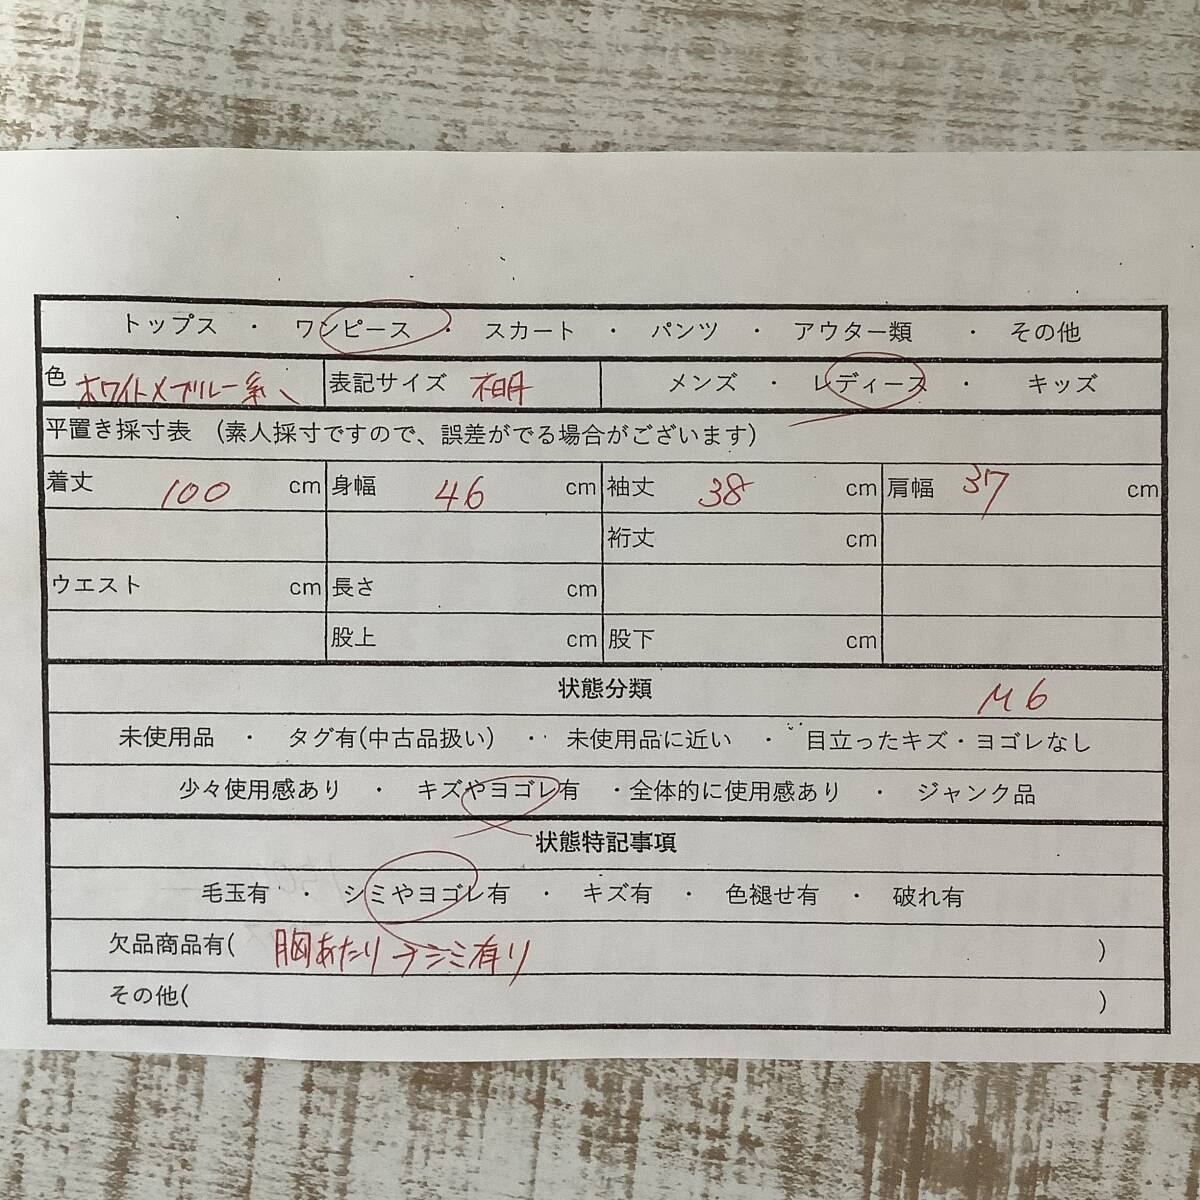 トップス ・ ワンピース ・ スカート ・ パンツ ・ アウター類 ・ その他
色 ホワイト×ブルー系 表記サイズ 不明 メンズ ・ レディース ・ キッズ
平置き採寸表 (素人採寸ですので、誤差がでる場合がございます)
着丈 100 cm 身幅 46 cm 袖丈 38 cm 肩幅 37 cm
裄丈 cm
ウエスト cm 長さ cm
股上 cm 股下 cm
状態分類 M6
未使用品 ・ タグ有(中古品扱い) ・ 未使用品に近い ・ 目立ったキズ・ヨゴレなし
少々使用感あり ・ キズやヨゴレ有 ・全体的に使用感あり ・ ジャンク品
状態特記事項
毛玉有 ・ シミやヨゴレ有 ・ キズ有 ・ 色褪せ有 ・ 破れ有
欠品商品有( 胸あたり シミ有り )
その他( )